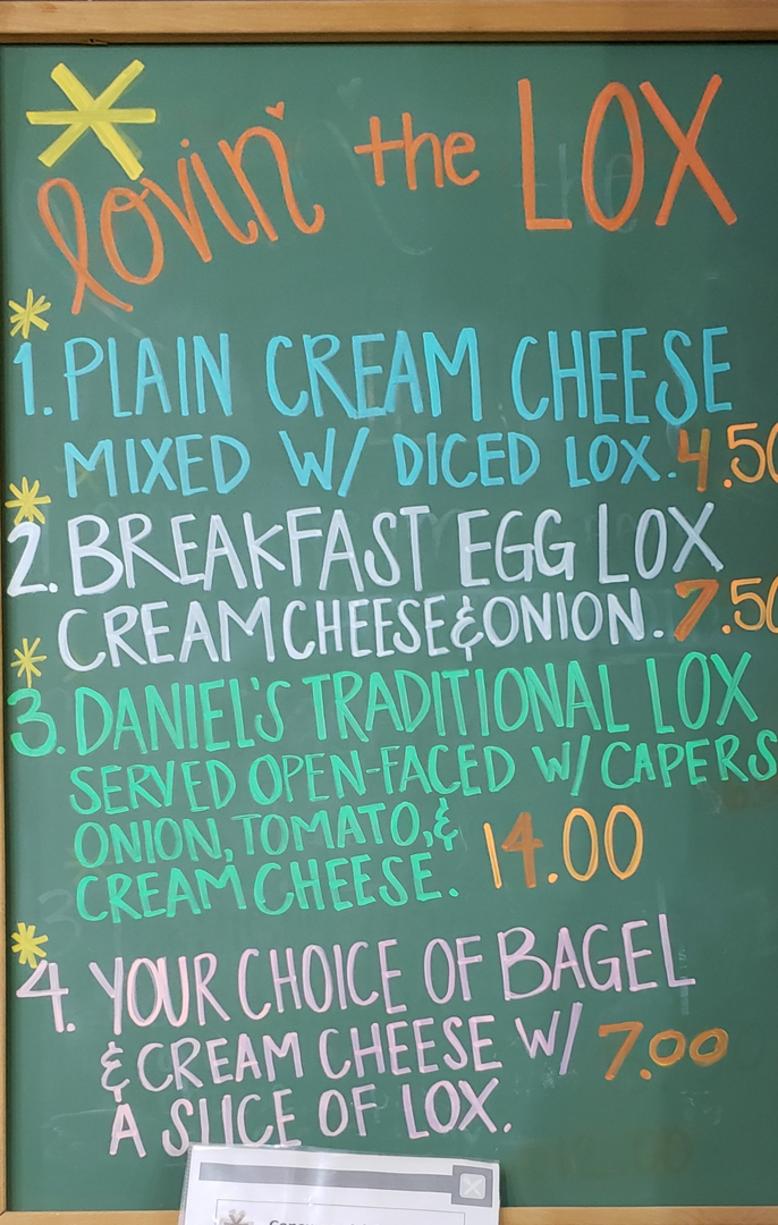 * lovin' the LOX
* 1. PLAIN CREAM CHEESE
MIXED W/ DICED LOX. 4.50
* 2. BREAKFAST EGG LOX
CREAM CHEESE & ONION. 7.50
* 3. DANIEL'S TRADITIONAL LOX
SERVED OPEN-FACED W/ CAPERS
ONION, TOMATO, &
CREAM CHEESE. 14.00
* 4. YOUR CHOICE OF BAGEL
& CREAM CHEESE W/ 7.00
A SLICE OF LOX.